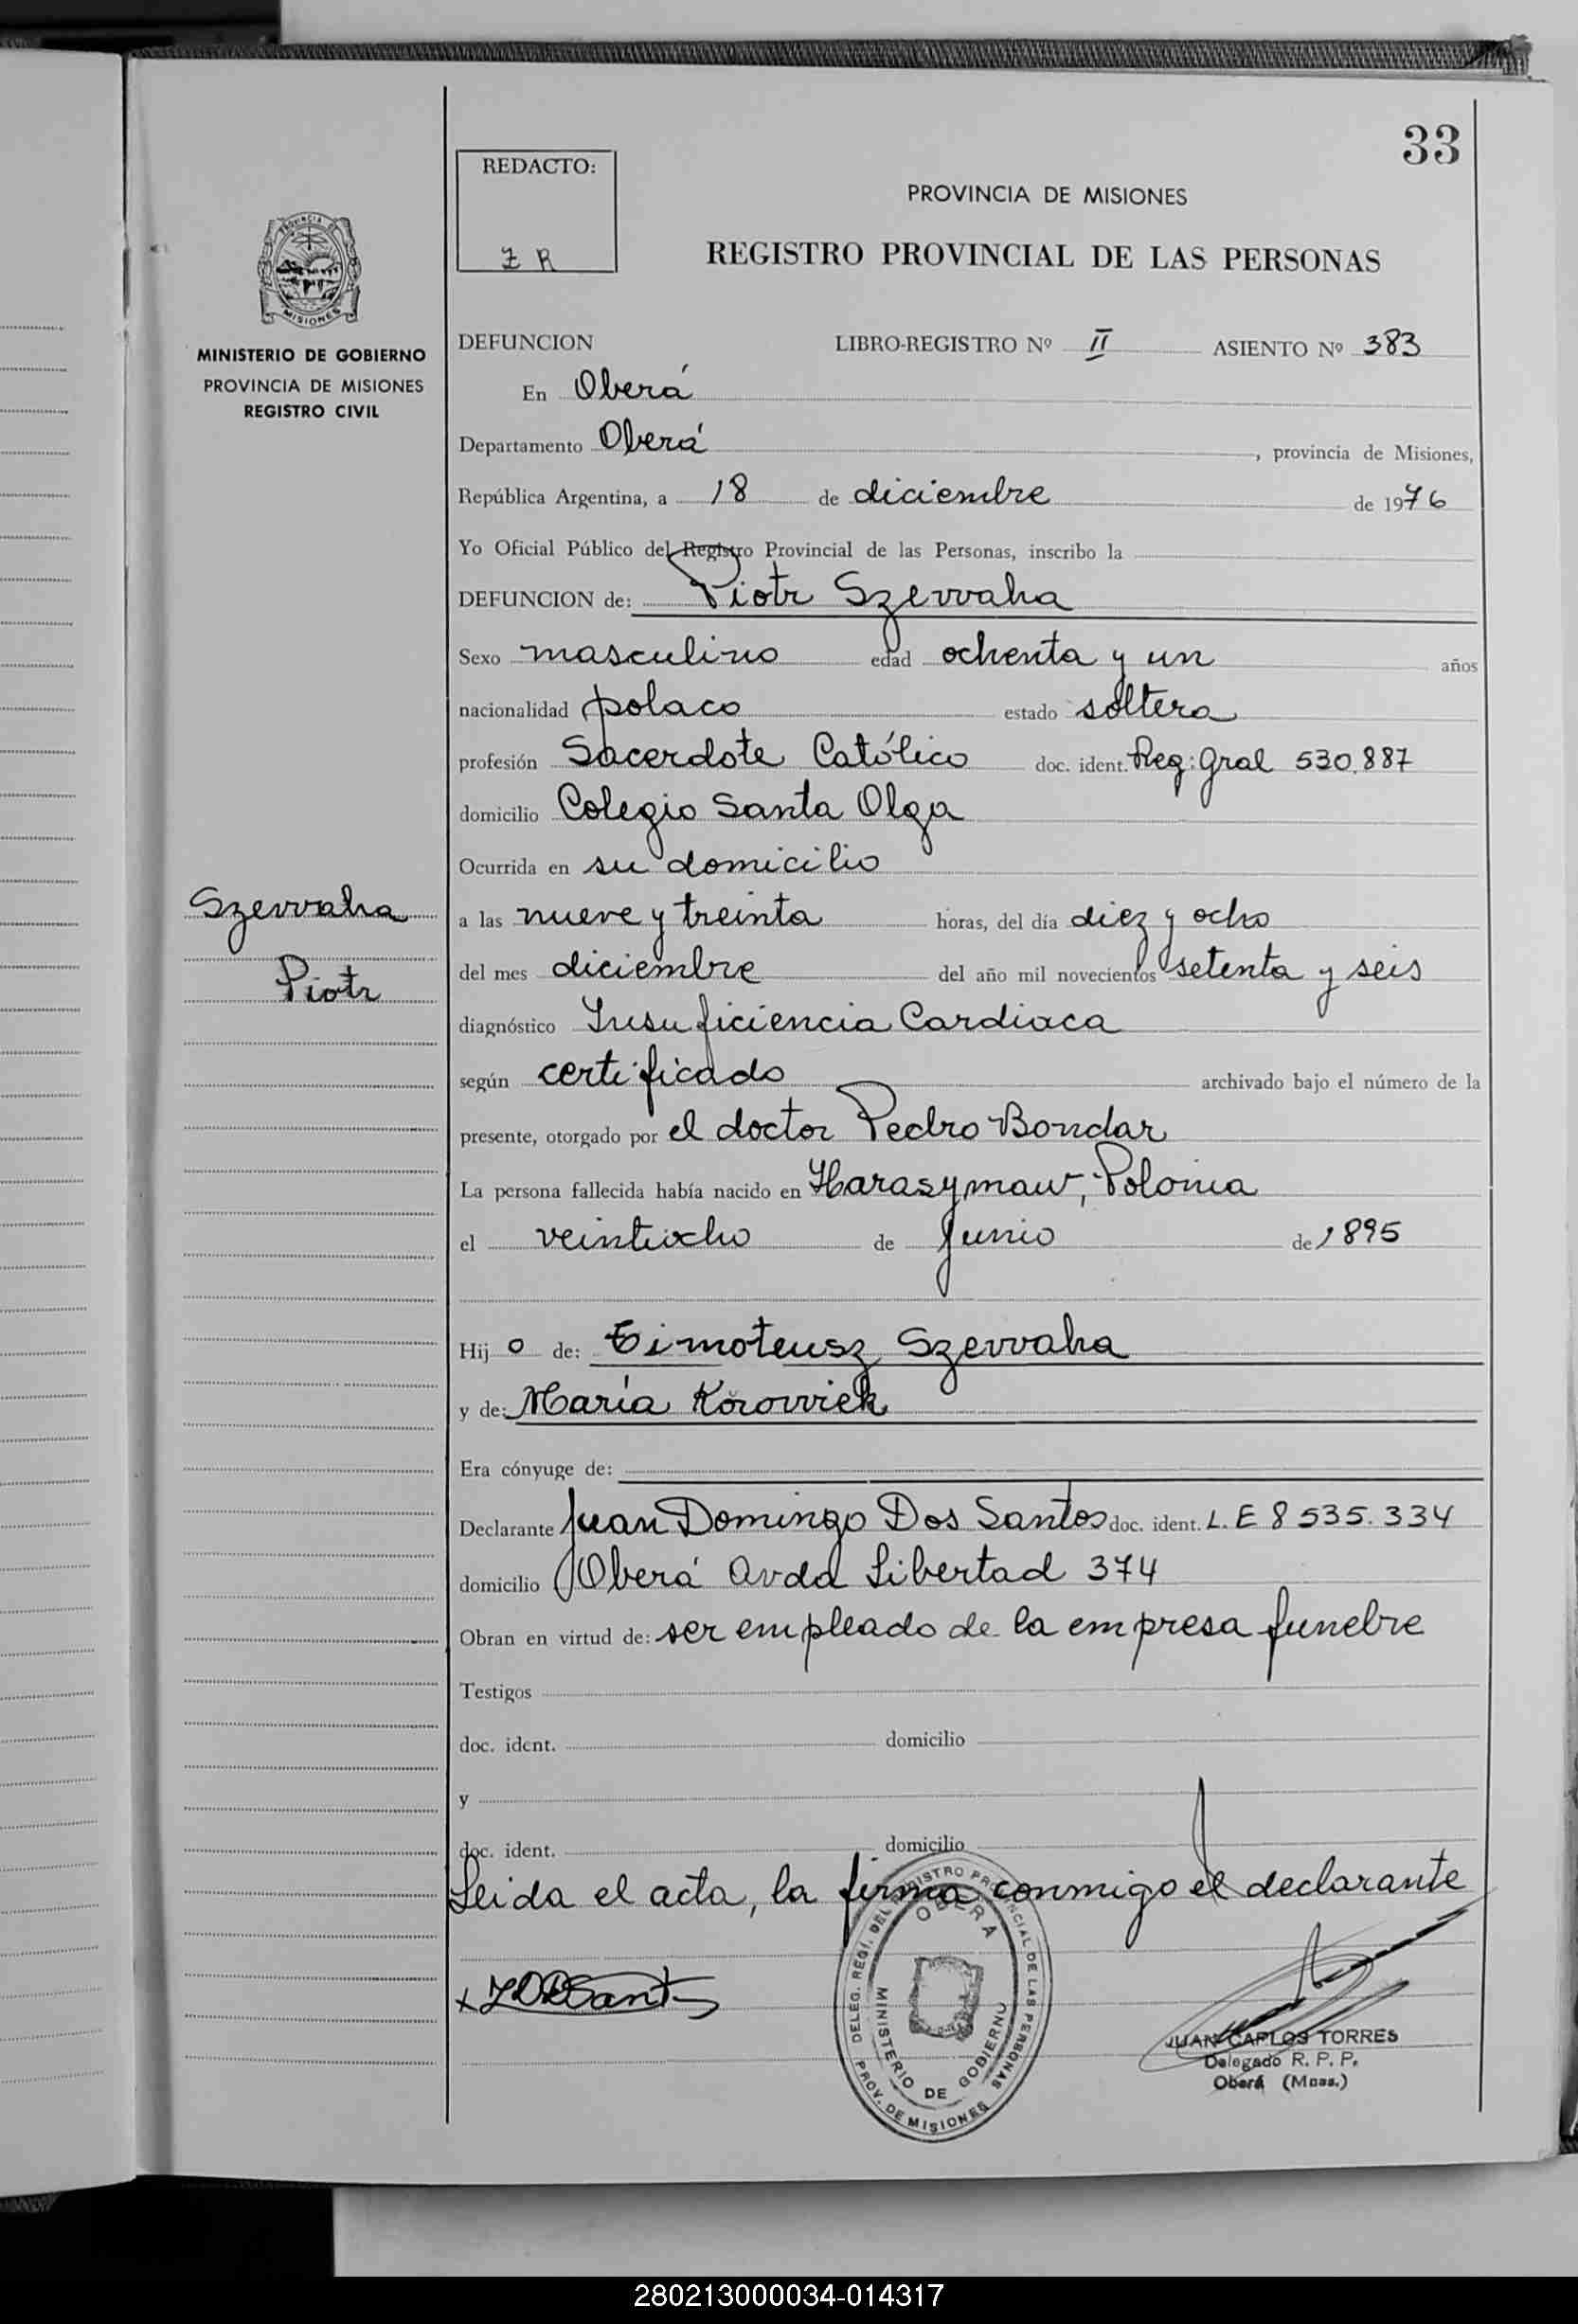 33
REDACTO:
Z R
PROVINCIA DE MISIONES
REGISTRO PROVINCIAL DE LAS PERSONAS
PROVINCIA DE
MISIONES
MINISTERIO DE GOBIERNO
PROVINCIA DE MISIONES
REGISTRO CIVIL
DEFUNCION LIBRO-REGISTRO Nº II ASIENTO Nº 383
En Oberá
Departamento Oberá, provincia de Misiones,
República Argentina, a 18 de diciembre de 1976
Yo Oficial Público del Registro Provincial de las Personas, inscribo la
DEFUNCION de: Piotr Szewaha
Sexo masculino edad ochenta y un años
nacionalidad polaco estado soltero
profesión Sacerdote Católico doc. ident. Reg: Gral 530.887
domicilio Colegio Santa Olga
Ocurrida en su domicilio
Szewaha
Piotr
a las nueve y treinta horas, del día diez y ocho
del mes diciembre del año mil novecientos setenta y seis
diagnóstico Insuficiencia Cardiaca
según certificado archivado bajo el número de la
presente, otorgado por el doctor Pedro Bondar
La persona fallecida había nacido en Harasymaw, Polonia
el veintiocho de Junio de 1895
Hijo de: Timoteusz Szewaha
y de: María Korowiek
Era cónyuge de:
Declarante Juan Domingo Dos Santos doc. ident. L.E 8 535.334
domicilio Oberá Avda Libertad 374
Obran en virtud de: ser empleado de la empresa funebre
Testigos
doc. ident. domicilio
y
doc. ident. domicilio
Leida el acta, la firma conmigo el declarante
DELEG. REGI. DEL REGISTRO PROVINCIAL DE LAS PERSONAS
OBERA
MINISTERIO DE GOBIERNO
PROV. DE MISIONES
JUAN CARLOS TORRES
Delegado R. P. P.
Oberá (Mnes.)
280213000034-014317